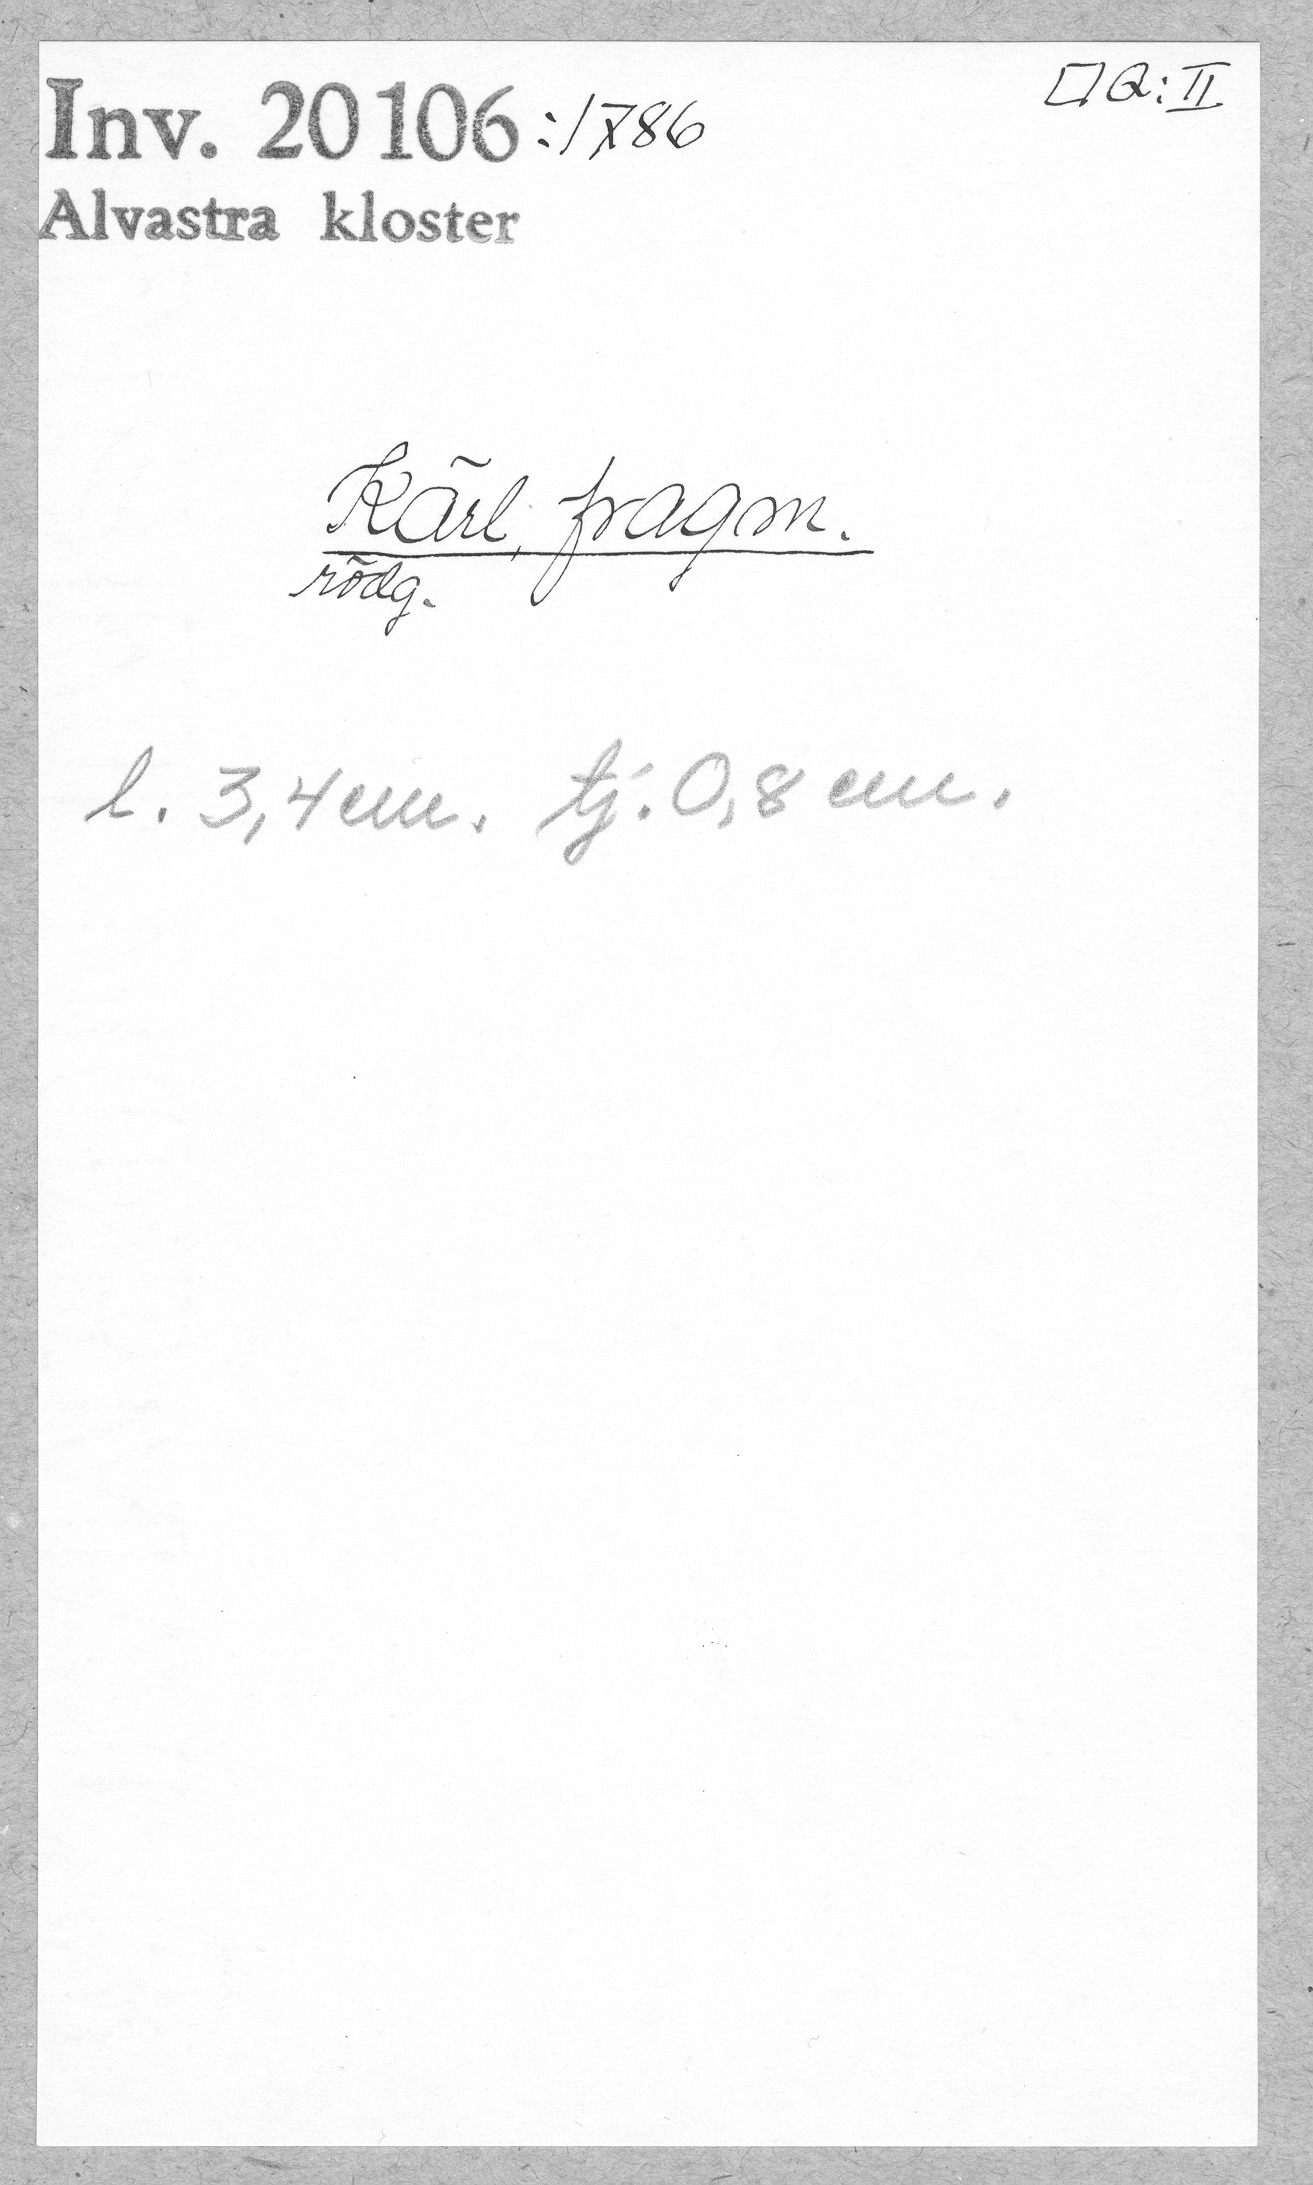 Inv. 20106:1786
□ Q:II
Alvastra kloster
Kärl, fragm.
rödg.
l. 3,4 cm. tj. 0,8 cm.